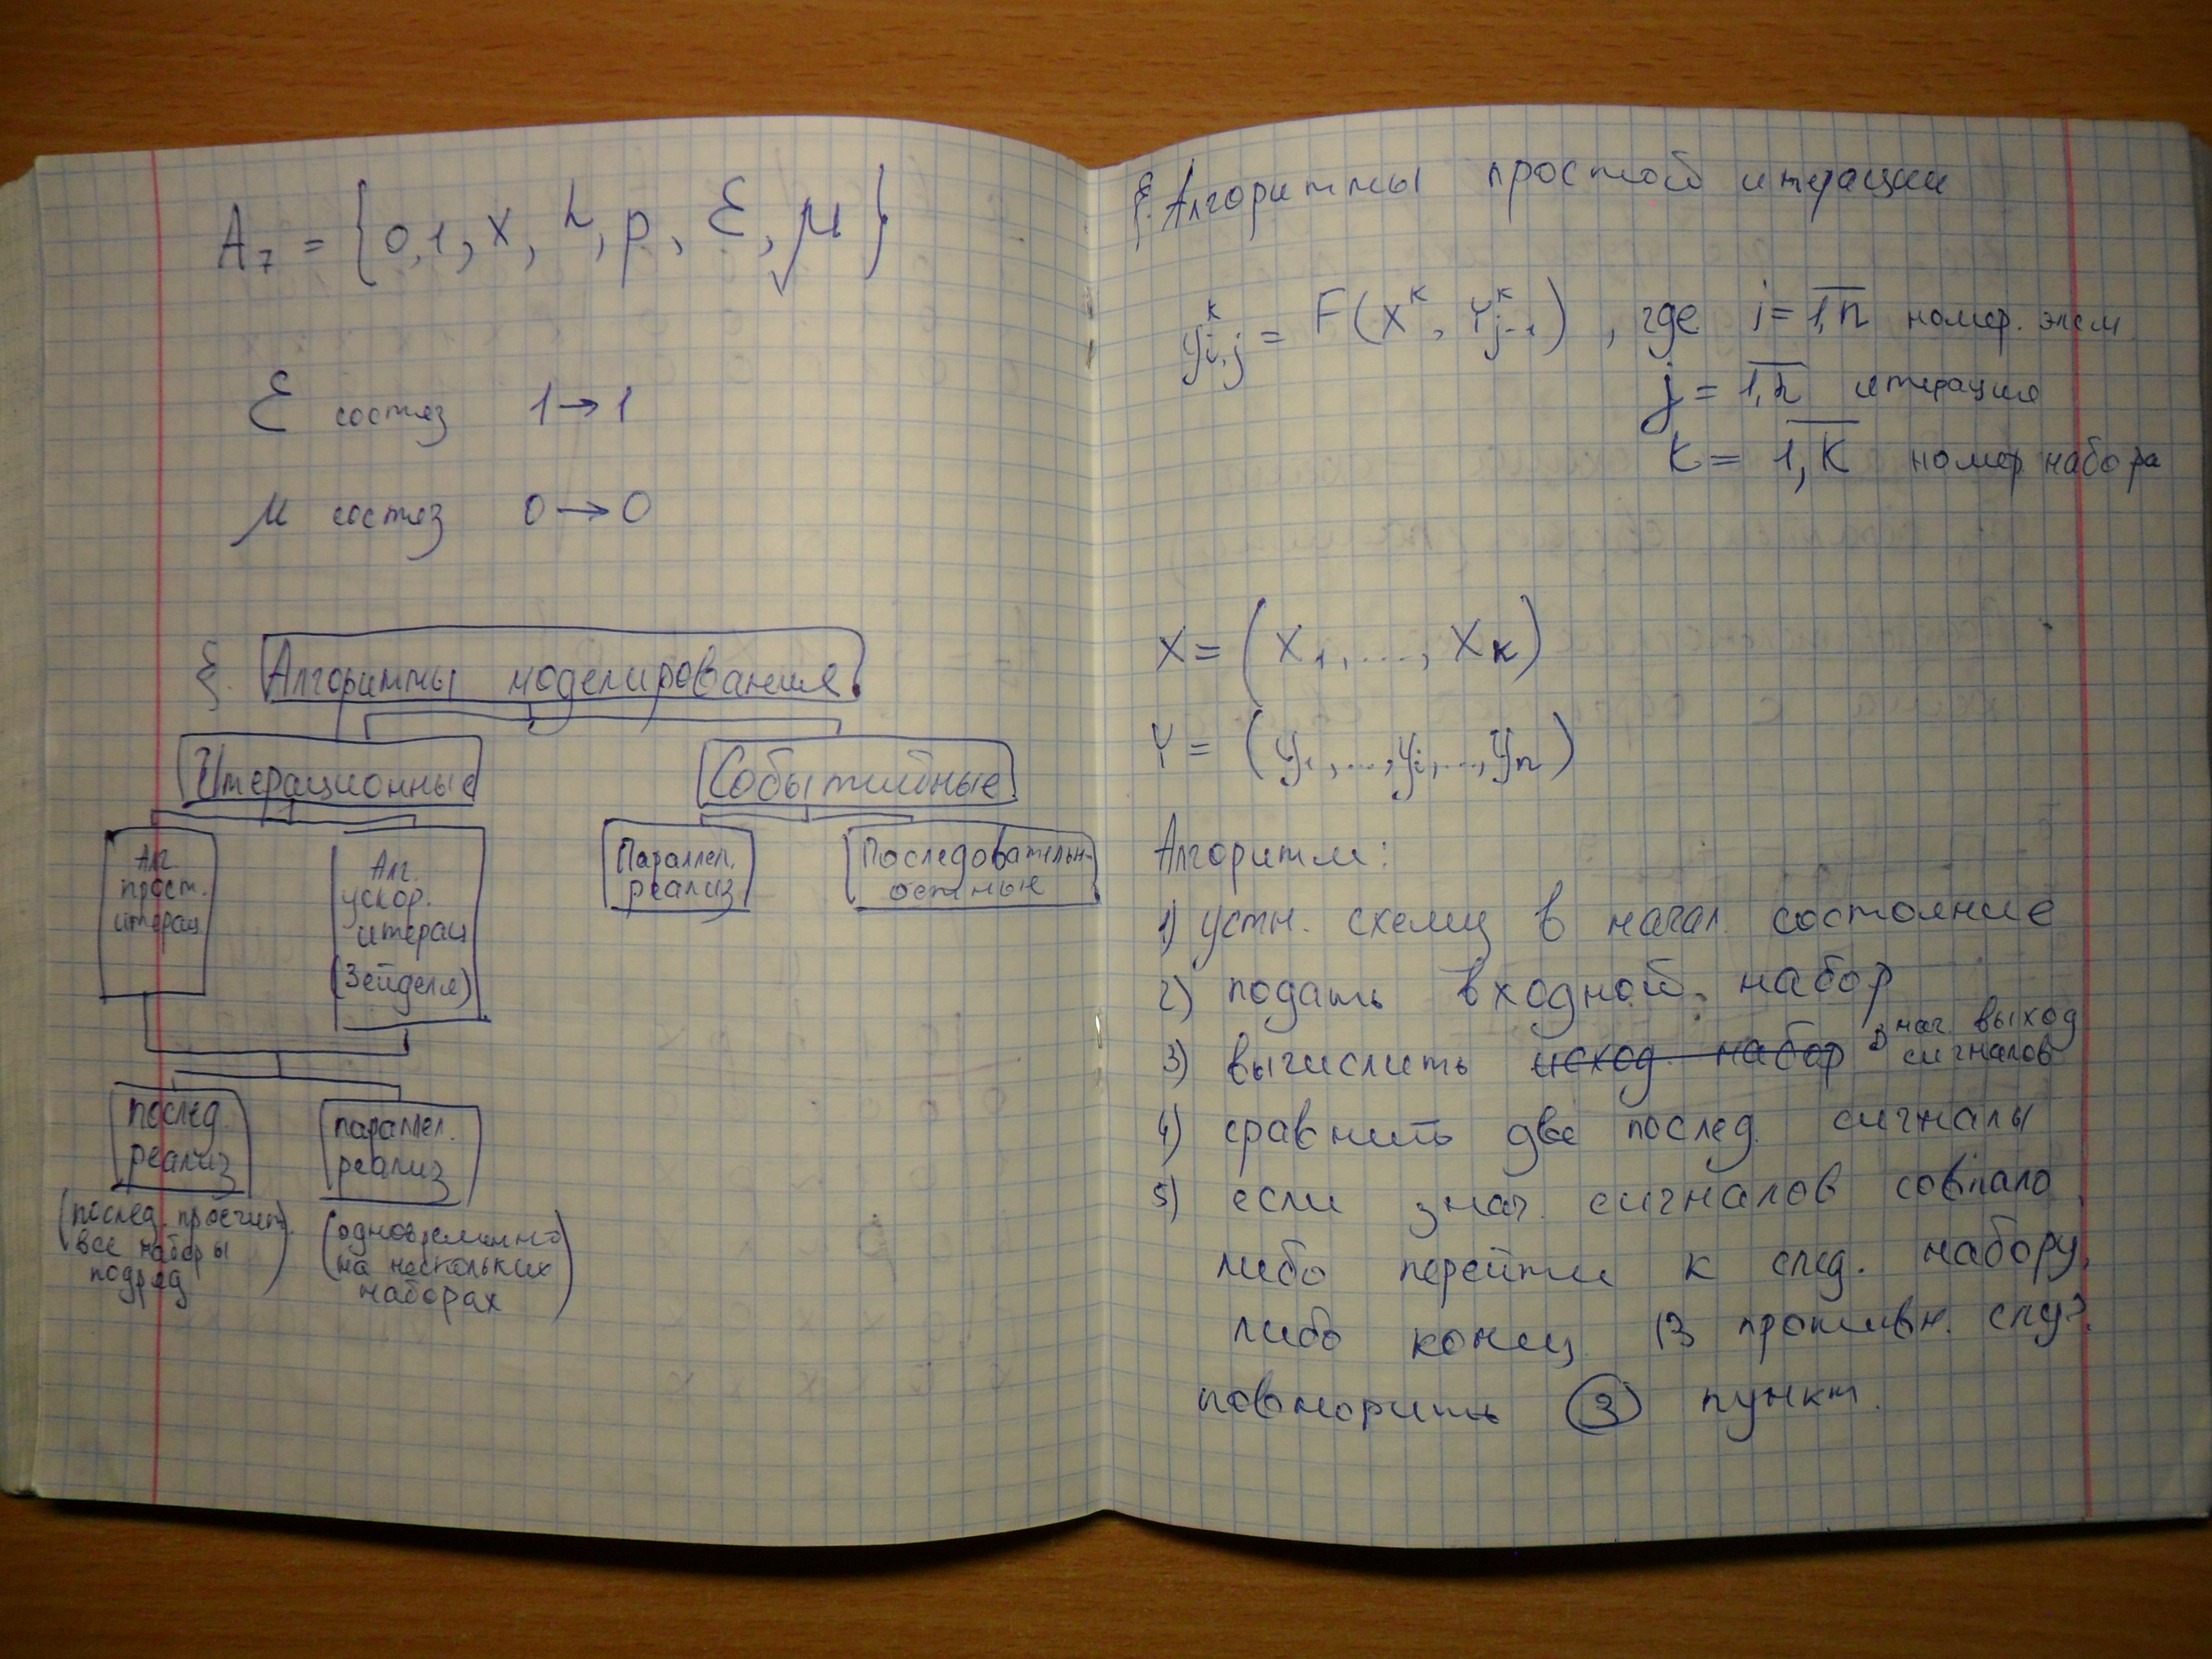 A₇ = {0,1, x, h, p, Ɛ, μ}
Ɛ состяз 1→1
μ состяз 0→0
§. Алгоритмы моделирования.
Итерационные
Событийные
Алг.
прост.
итерац
Алг.
ускор.
итерац
(Зейделя)
Параллел.
реализ
Последовательн-
остные
послед.
реализ
(послед. просчит.
все наборы
подряд)
параллел.
реализ
(одновременно
на нескольких
наборах)
§. Алгоритмы простой итерации
yᵏᵢ,ⱼ = F(Xᵏ, Yᵏⱼ₋₁), где i = 1,n номер. элем
j = 1,n итерация
k = 1,K номер набора
X = (X₁,..., Xк)
Y = (y₁,...,yᵢ,...,yₙ)
Алгоритм:
1) устн. схему в начал. состояние
2) подать входной. набор
3) вычислить исход. набор знач. выход
сигналов
4) сравнить две послед. сигналы
5) если знач. сигналов совпало,
либо перейти к след. набору,
либо конец. В противн. случ.
повторить 3 пункт.